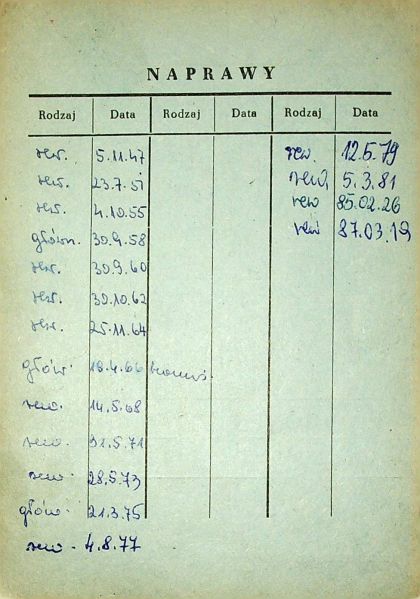 NAPRAWY
Rodzaj Data Rodzaj Data Rodzaj Data
rew. 5.11.47
rew. 23.7.51
rew. 4.10.55
główn. 30.9.58
rew. 30.9.60
rew. 30.10.62
rew. 25.11.64
głów. 18.4.66
rew. 14.5.68
rew. 31.5.71
rew. 28.5.73
głów. 21.3.75
rew. 4.8.77
rew. 12.5.79
rew. 5.3.81
rew 85.02.26
rew 87.03.19